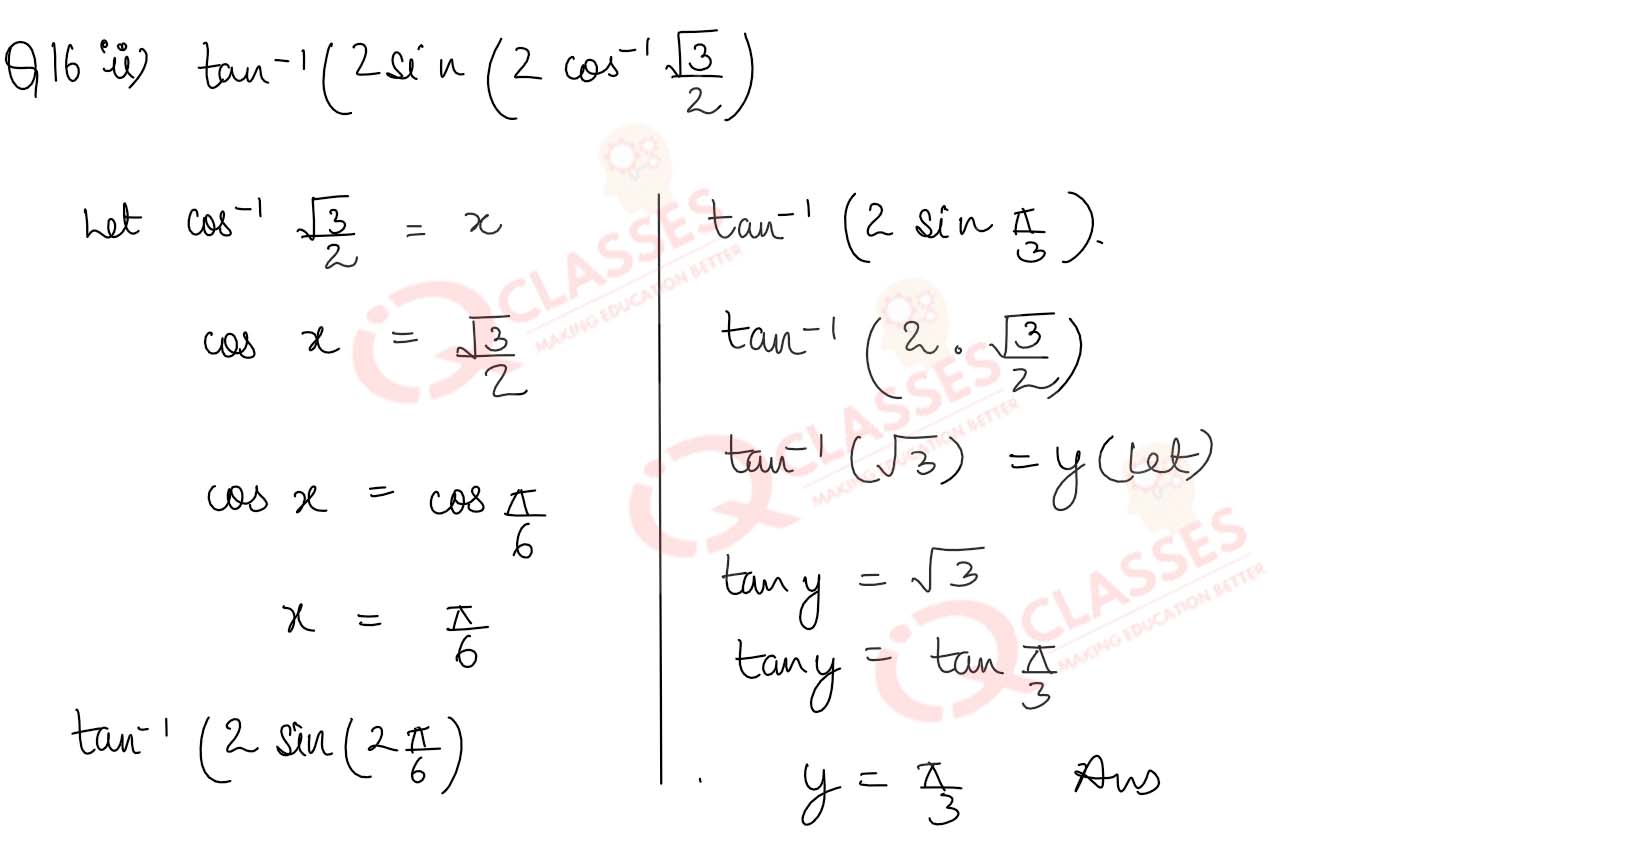 Q16 ii) tan⁻¹(2 sin(2 cos⁻¹ √3/2)
Let cos⁻¹ √3/2 = x
cos x = √3/2
cos x = cos π/6
x = π/6
tan⁻¹(2 sin(2 π/6)
tan⁻¹(2 sin π/3).
tan⁻¹(2 . √3/2)
tan⁻¹(√3) = y (let)
tan y = √3
tan y = tan π/3
y = π/3 Ans
iQ CLASSES
MAKING EDUCATION BETTER
iQ CLASSES
MAKING EDUCATION BETTER
iQ CLASSES
MAKING EDUCATION BETTER